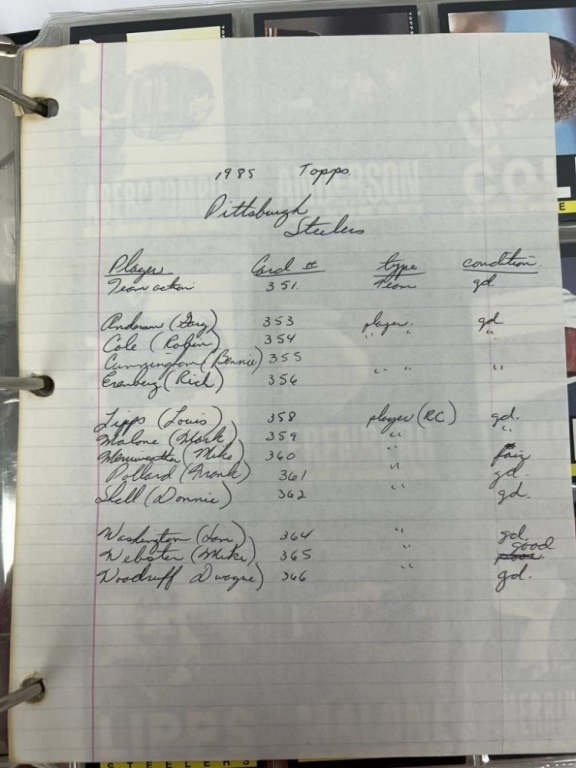 1985 Topps
Pittsburgh
Steelers
Player Card # type condition
Team action 351. team gd
Anderson (Gary) 353 player. gd
Cole (Robin) 354 " " "
Cunningham (Bennie) 355
Erenberg (Rich) 356 " " "
Lipps (Louis) 358 player (RC) gd.
Malone (Mark) 359 " "
Merriweather (Mike) 360 " fair
Pollard (Frank) 361 " gd.
Shell (Donnie) 362 " gd.
Washington (Sam) 364 " gd.
good
Webster (Mike) 365 "
Woodruff Dwayne) 366 " gd.
ABERCROMBIE ANDERSON COL
LIPPS MALONE
STEELERS